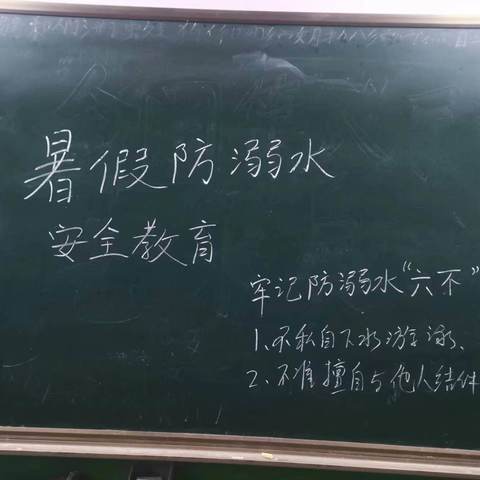 暑假防溺水
安全教育
牢记防溺水“六不”
1、不私自下水游泳、
2、不准擅自与他人结伴